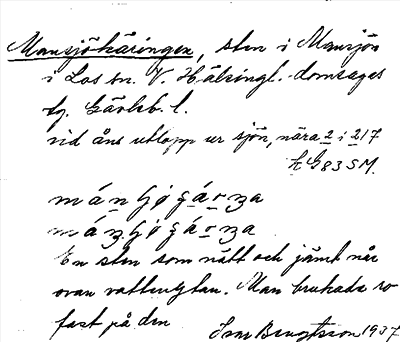 Mansjökäringen, sten i Mansjön
i Los sn. V. Hälsingl. domsagas
tg. Gävleb. l.
vid åns utlopp ur sjön, nära 2 i 217
LG83SM.
mánʃøgárza
mázʃøgárza
En sten som nått och jämt når
ovan vattenytan. Man brukade ro
fast på den
Ivar Bengtsson 1937